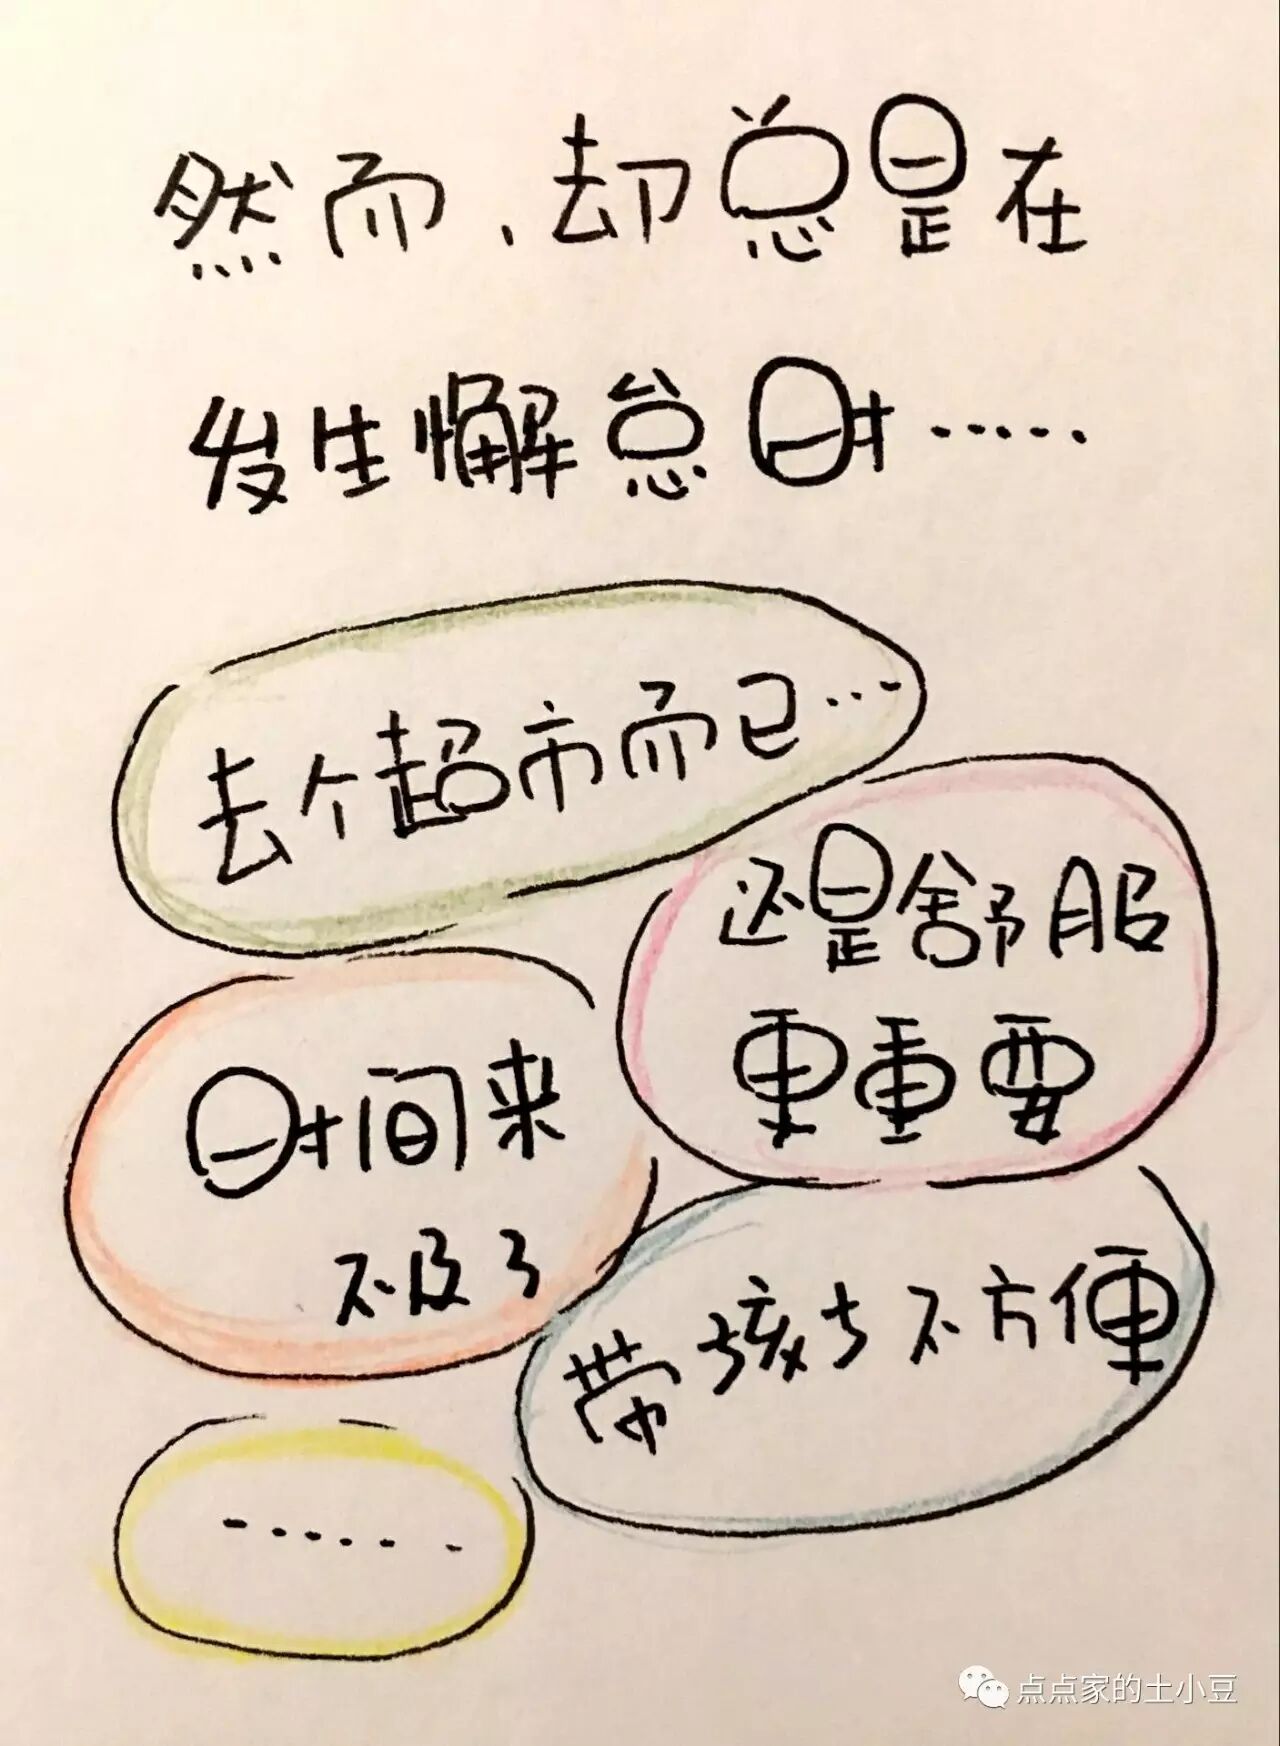 然而，却总是在
发生懈怠时……
去个超市而已…
还是舒服
更重要
时间来
不及了
带孩子不方便
……
点点家的土小豆